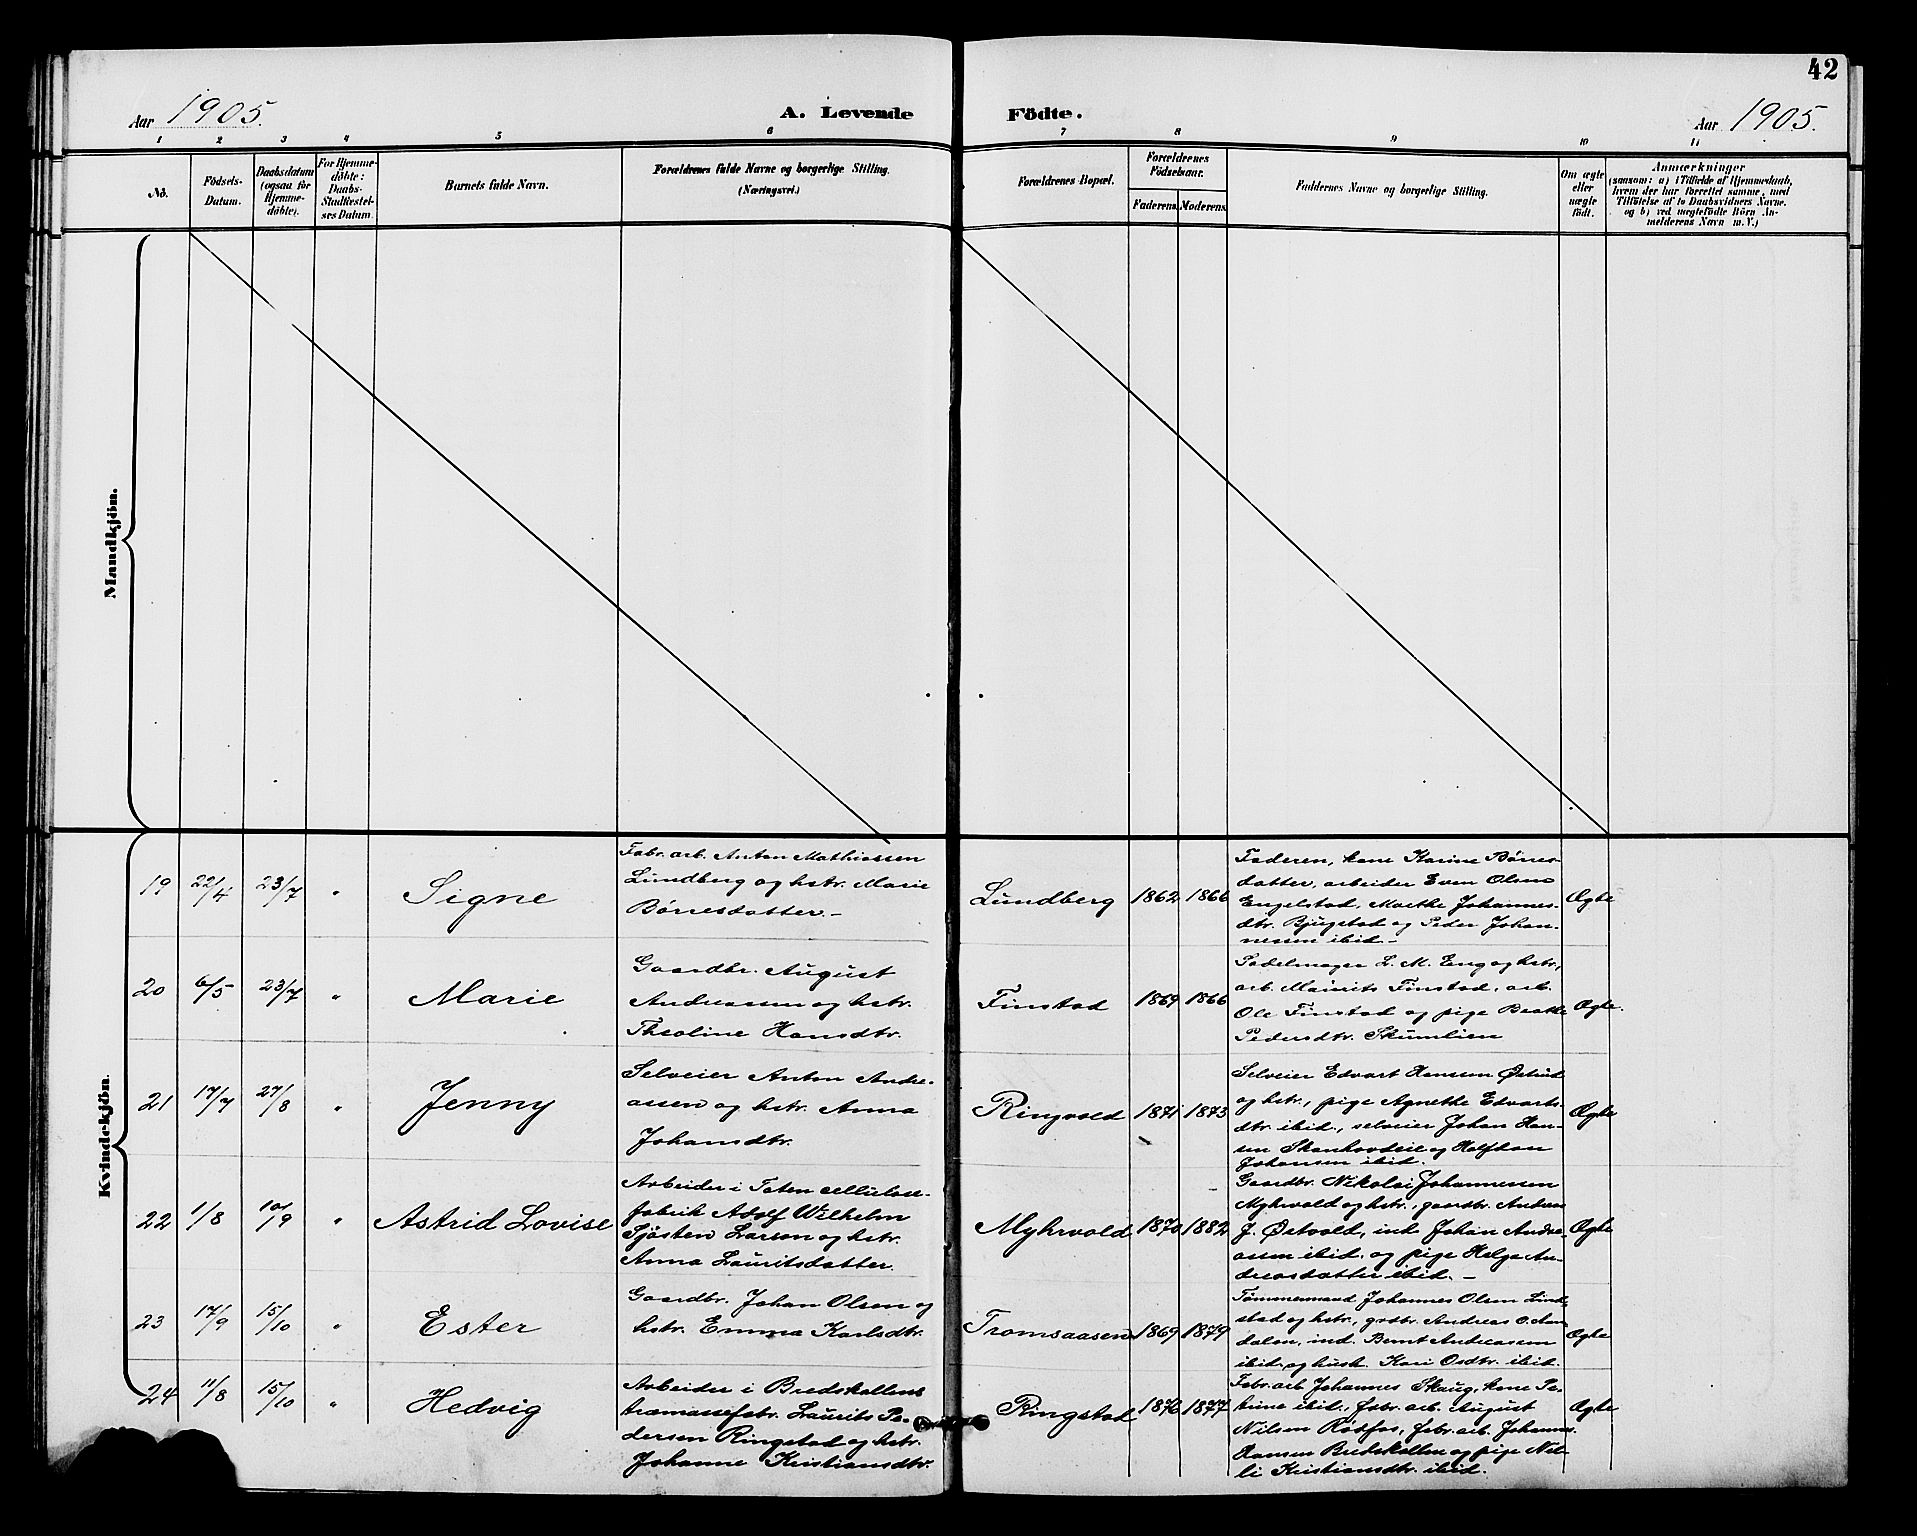 42
Aar 1905.
A. Levende
Födte.
Aar 1905.
1 2 3 4 5 6 7 8 9 10 11
No.
Födsels-
Datum.
Daabsdatum
(ogsaa for
Hjemme-
döbte).
For Hjemme-
döbte:
Daabs-
Stadfæstel-
ses Datum.
Barnets fulde Navn.
Forældrenes fulde Navne og borgerlige Stilling.
(Næringsvei.)
Forældrenes Bopæl.
Forældrenes
Födselsaar.
Faderens.
Moderens.
Faddernes Navne og borgerlige Stilling.
Om ægte
eller
uægte
født.
Anmærkninger
(saasom: a) i Tilfælde af Hjemmedaab,
hvem der har forrettet samme, med
Tilføielse af to Daabsvidners Navne.
og b) ved uægtefødte Börn An-
melderens Navn m. V.)
Mandkjön.
Kvindekjön.
19 22/4 23/7 " Signe
Fabr. arb. Anton Mathiassen
Lundberg og hstr. Marie
Börresdatter. –
Lundberg 1862 1866
Faderen, kone Karine Börres-
datter, arbeider Even Olsen
Engelstad, Marthe Johannes-
dtr. Bjugstad og Peder Johan-
nessen ibid. –
Ægte
20 6/5 23/7 " Marie
Gaardbr. August
Andreassen og hstr.
Theoline Hansdtr.
Finstad 1869 1866
Sadelmager L. M. Eng og hstr.,
arb. Maurits Finstad, arb.
Ole Finstad og pige Beathe
Pedersdtr. Skumlien
Ægte.
21 17/7 27/8 " Jenny
Selveier Anton Andre-
assen og hstr. Anna
Johansdtr.
Ringvold 1871 1873
Selveier Edvart Hansen
og hstr., pige Agnethe Edvarts-
dtr. ibid., selveier Johan Han-
sen og Halfdan
Johansen ibid.
Ægte
22 1/8 10/9 " Astrid Lovise
Arbeider i Toten cellulose-
fabrik Adolf Wilhelm
Sjösten Larsen og hstr.
Anna Lauritsdatter.
Myhrvold 1870 1882
Gaardbr. Nikolai Johannessen
Myhrvold og hstr., gaardbr. Andreas
J. Østvold, ind. Johan Andre-
assen ibid. og pige Helga An-
dreasdatter ibid. –
Ægte
23 17/9 15/10 " Ester
Gaardbr. Johan Olsen og
hstr. Emma Karlsdtr.
Tromsaasen 1869 1879
Tømmermand Johannes Olsen Lind-
stad og hstr., grdbr. Andreas O.
dalen, ind. Bernt Andreassen
ibid. og hush. Kari Osdtr. ibid.
Ægte
24 11/8 15/10 " Hedvig
Arbeider i Bredskallens
træmassefabr. Laurits Pe-
dersen Ringstad og hstr.
Johanne Kristiansdtr.
Ringstad 1876 1877
Fabr. arb. Johannes Skaug, kone Pe-
trine ibid., fabr. arb. August
Nilsen Rødfos, fabr. arb. Johannes
Hansen Bredskallen og pige Nel-
li Kristiansdtr. ibid.
Ægte